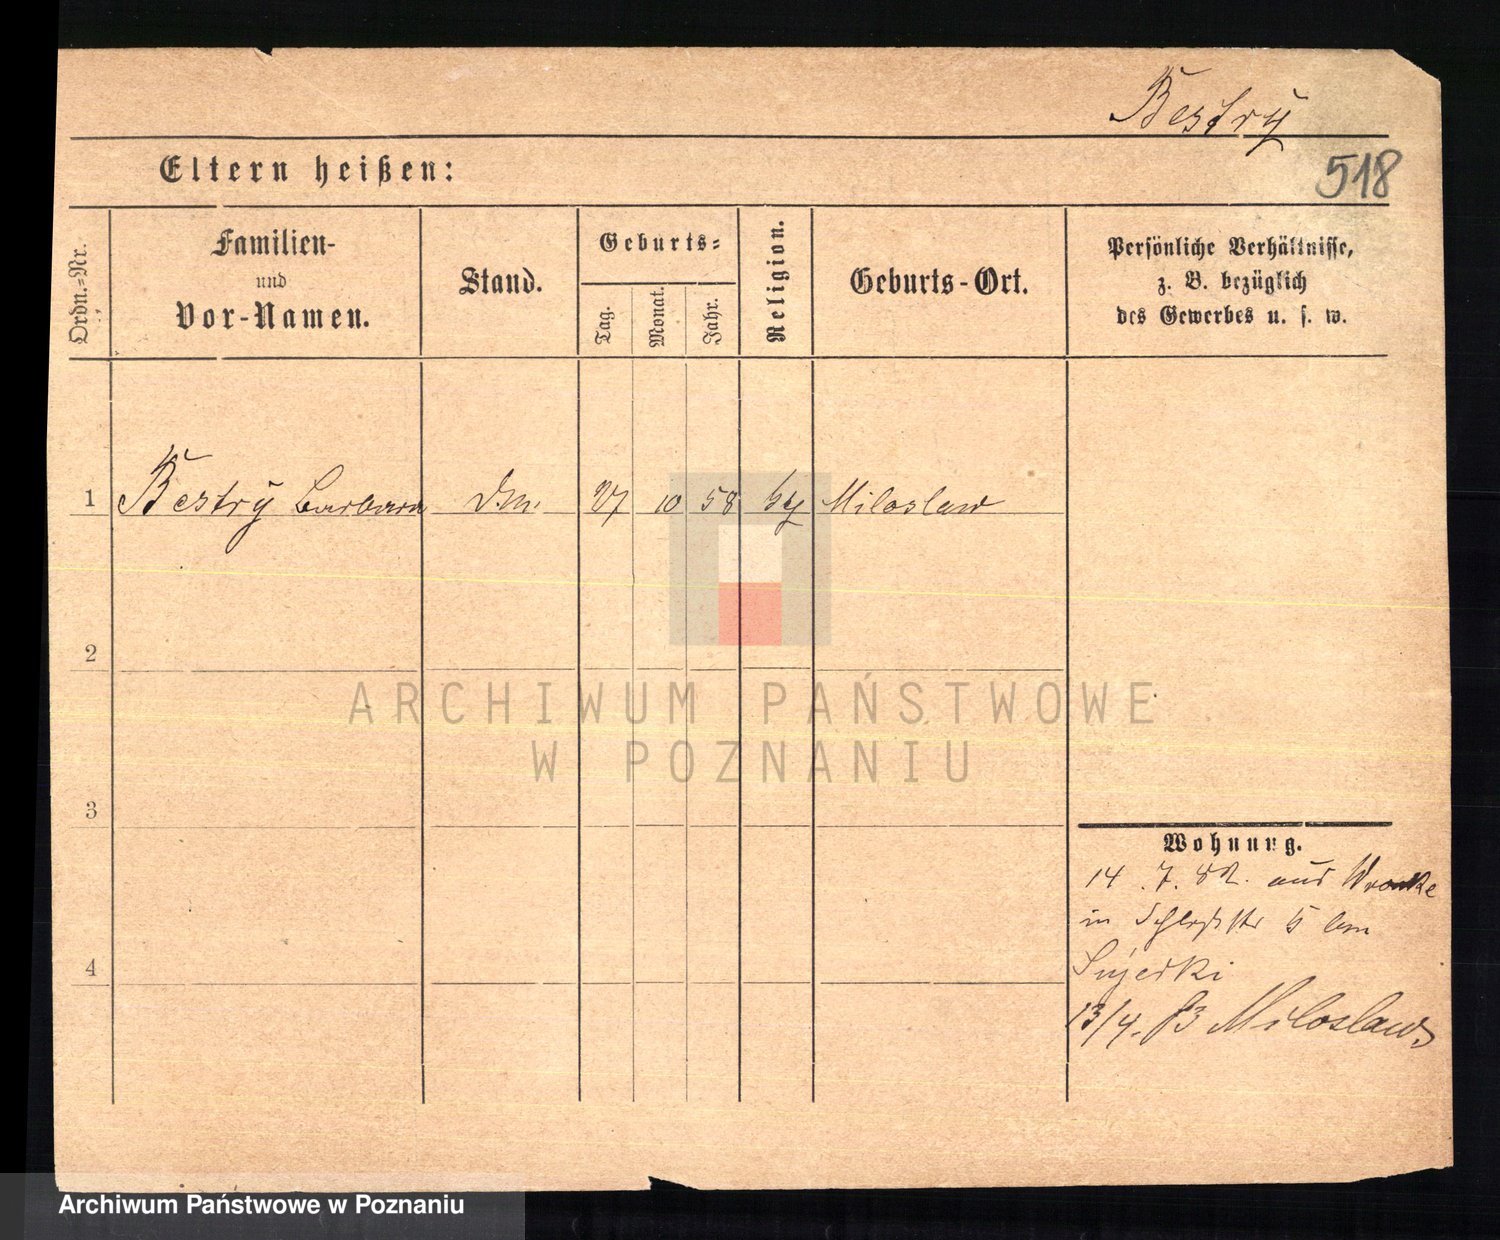 Bestry
518
Eltern heißen:
Ordn.=Nr.
Familien-
und
Vor-Namen.
Stand.
Geburts=
Tag.
Monat.
Jahr.
Religion.
Geburts-Ort.
Persönliche Verhältnisse,
z. B. bezüglich
des Gewerbes u. s. w.
1 Bestrÿ Barbara 27 10 58 Miloslaw
2
3
4
Wohnung.
14. 7. 82. aus Wronke
in 5 bem
13/4. 83 Miloslaw
ARCHIWUM PAŃSTWOWE
W POZNANIU
Archiwum Państwowe w Poznaniu